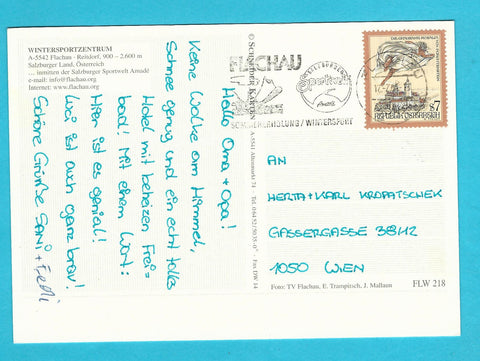 WINTERSPORTZENTRUM
A-5542 Flachau - Reitdorf, 900 – 2.600 m
Salzburger Land, Österreich
... inmitten der Salzburger Sportwelt Amadé
e-mail: info@flachau.org
Internet: www.flachau.org
Hallo Oma + Opa!
Keine Wolke am Himmel,
Schnee genug und ein echt tolles
Hotel mit beheizen Frei=
bad! Mit einem Wort:
Hier ist es genial!
Luci ist auch ganz brav!
Schöne Grüße Sani + Ferdi
FLACHAU
SOMMERERHOLUNG / WINTERSPORT
REPUBLIK ÖSTERREICH
S7
AN
HERTA + KARL KROPATSCHEK
GASSERGASSE 38/42
1050 WIEN
Foto: TV Flachau, E. Trampitsch, J. Mallaun
FLW 218